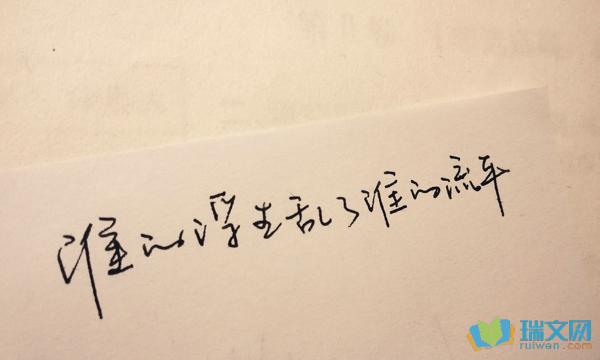 谁的浮生乱了谁的流年
瑞文网
ruiwen.com